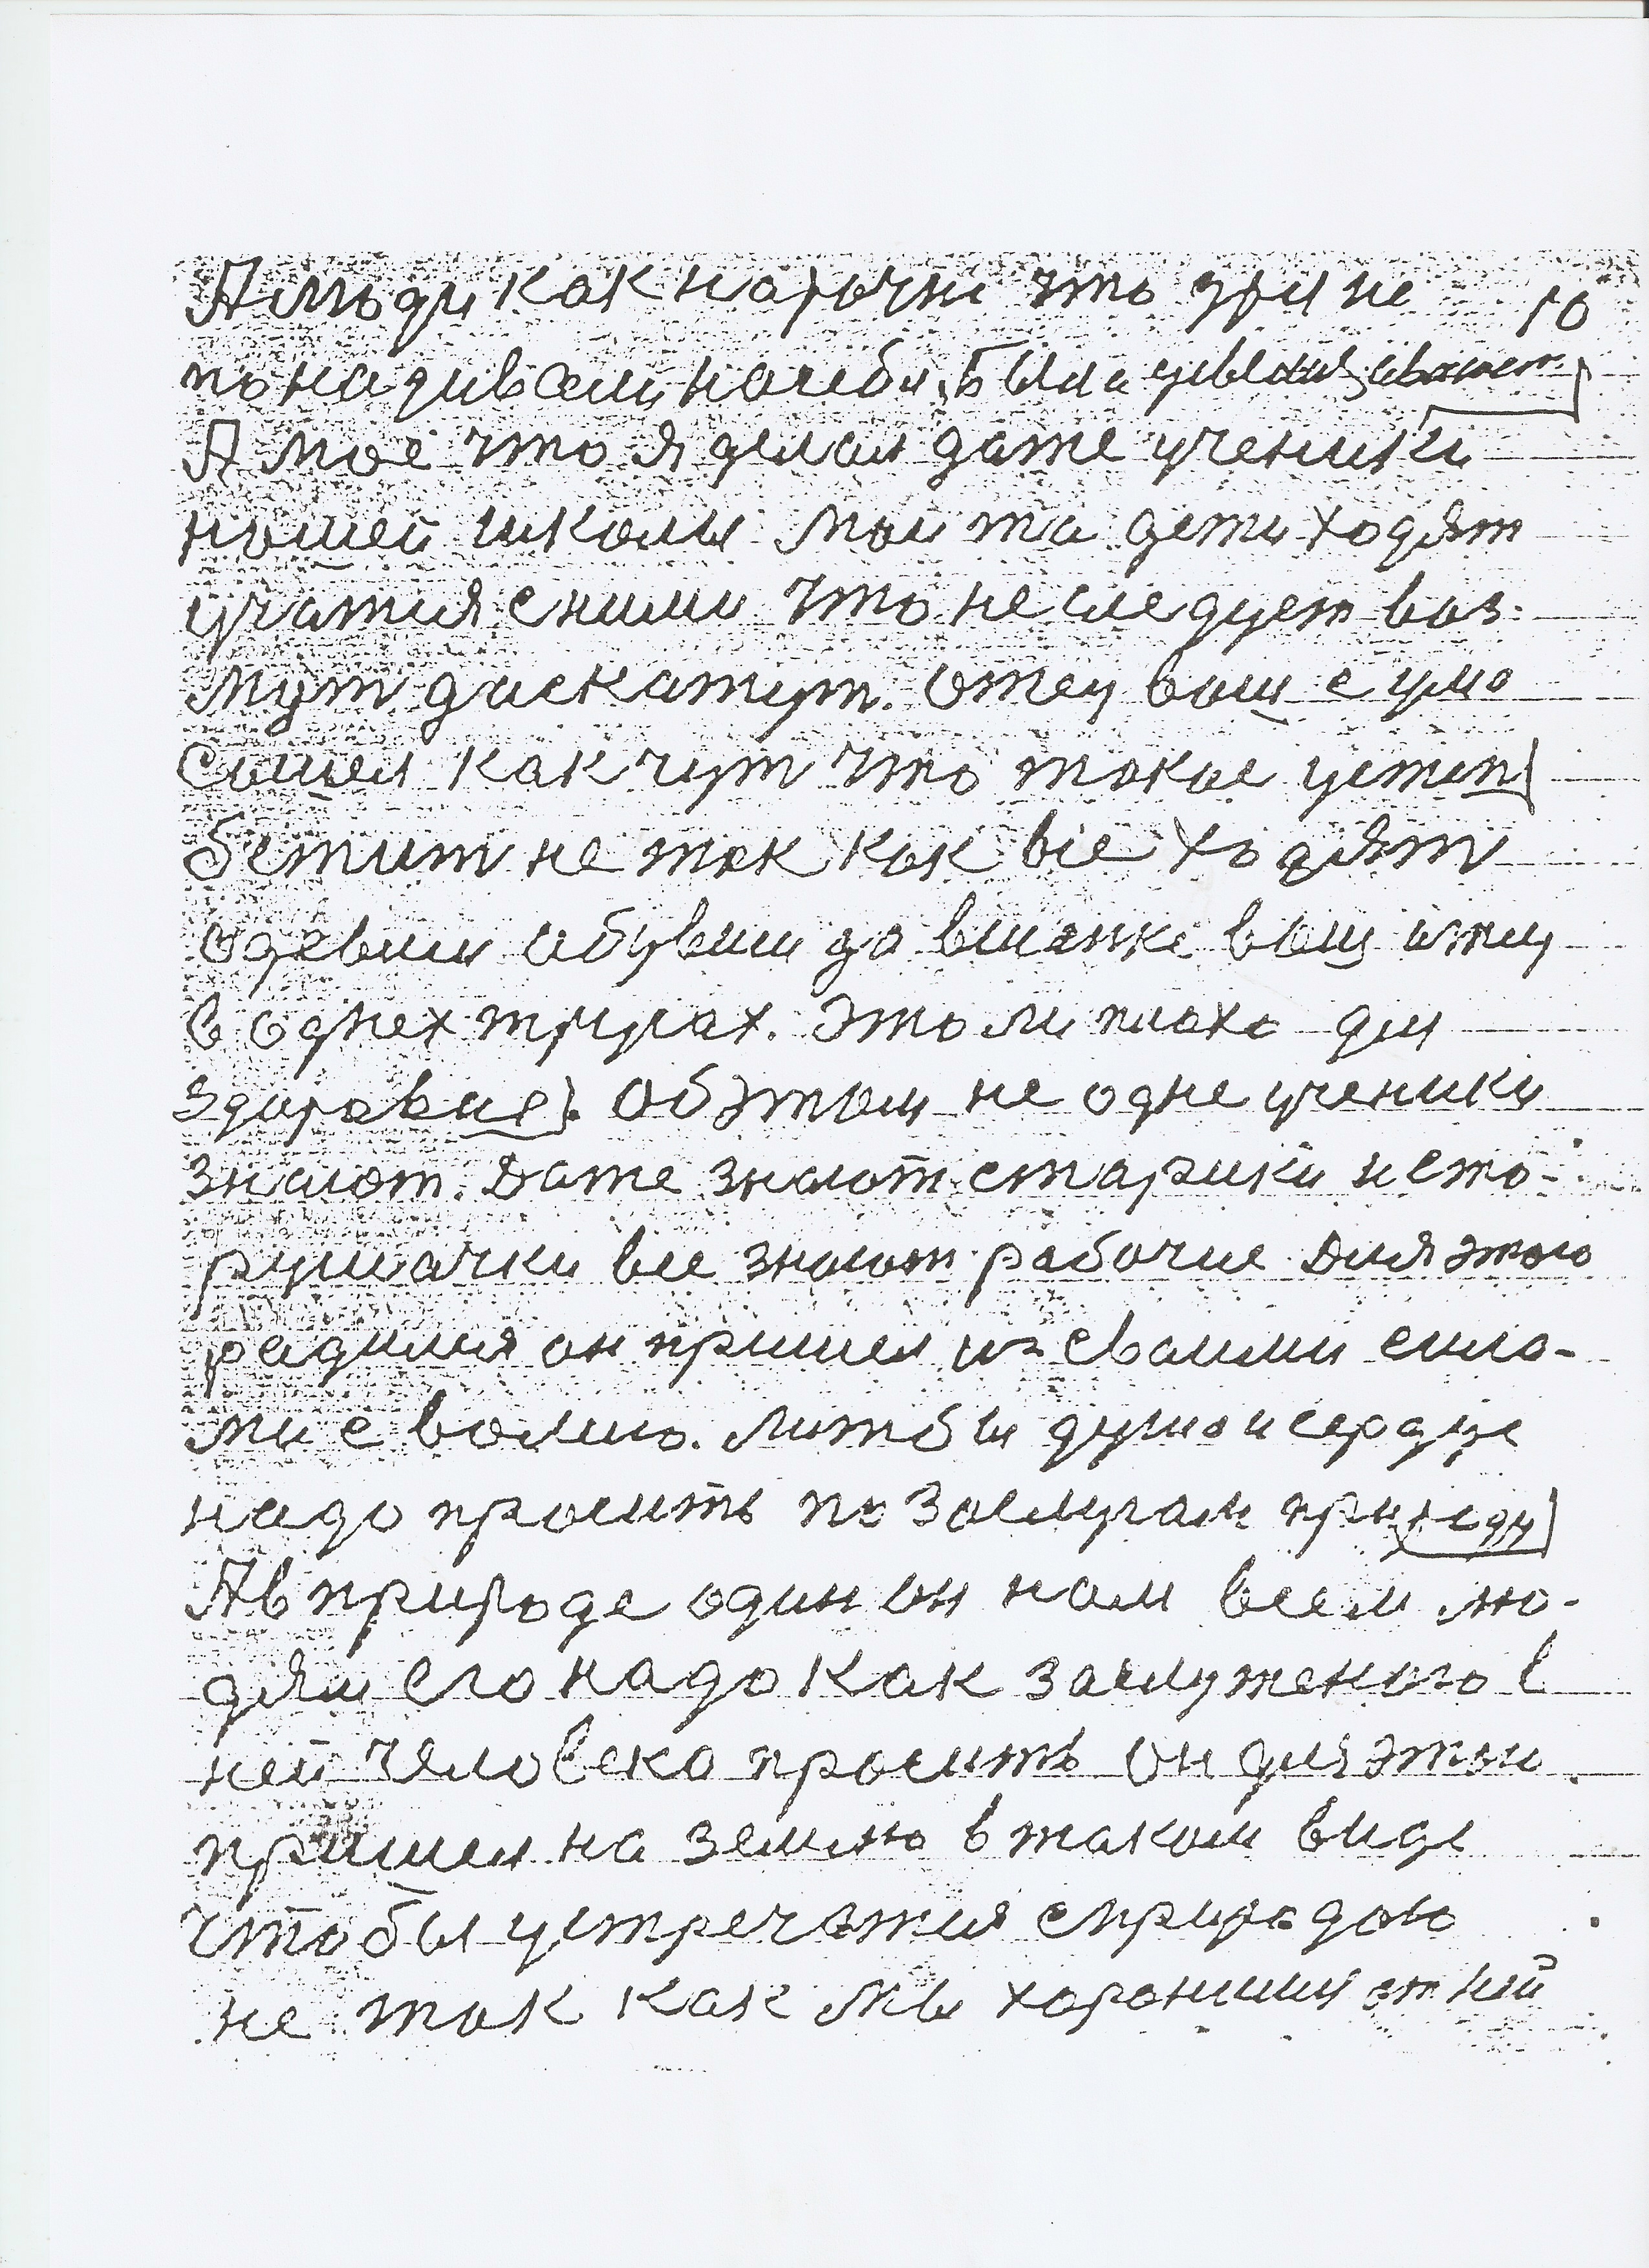 А люди как нарочне что зря не 10
понадивали на себя, были увлечены
А мое что я делал даже ученики
нашей школы мои та дети ходят
учатся с ними что не следует воз-
мут да скажут. Отец ваш с ума
сошел как чут что такое устеп
бежит не так как все ходят
одевши обувши да в шапке ваш отец
в однех трусах. Это ли плохо для
здаровия. Об этом не одне ученики
знают. Даже знают старики и ста-
рушачки все знают рабочие Для этого
радился он пришел из сваими сила-
ми с волию. Мит бы душа и сердце
надо просить по Заслугам природу
А в природе один он нам всем лю-
дям его надо как заслуженого в
ней человека просить он для этаи
пришел на землю в таком виде
чтобы устречатся с природою
не так как мы хоронимся от ней